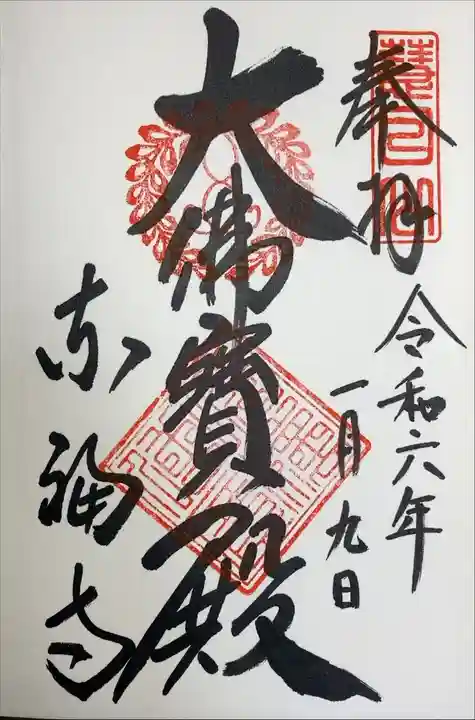 奉拝
令和六年
一月九日
大佛寳殿
東福寺
慧日山